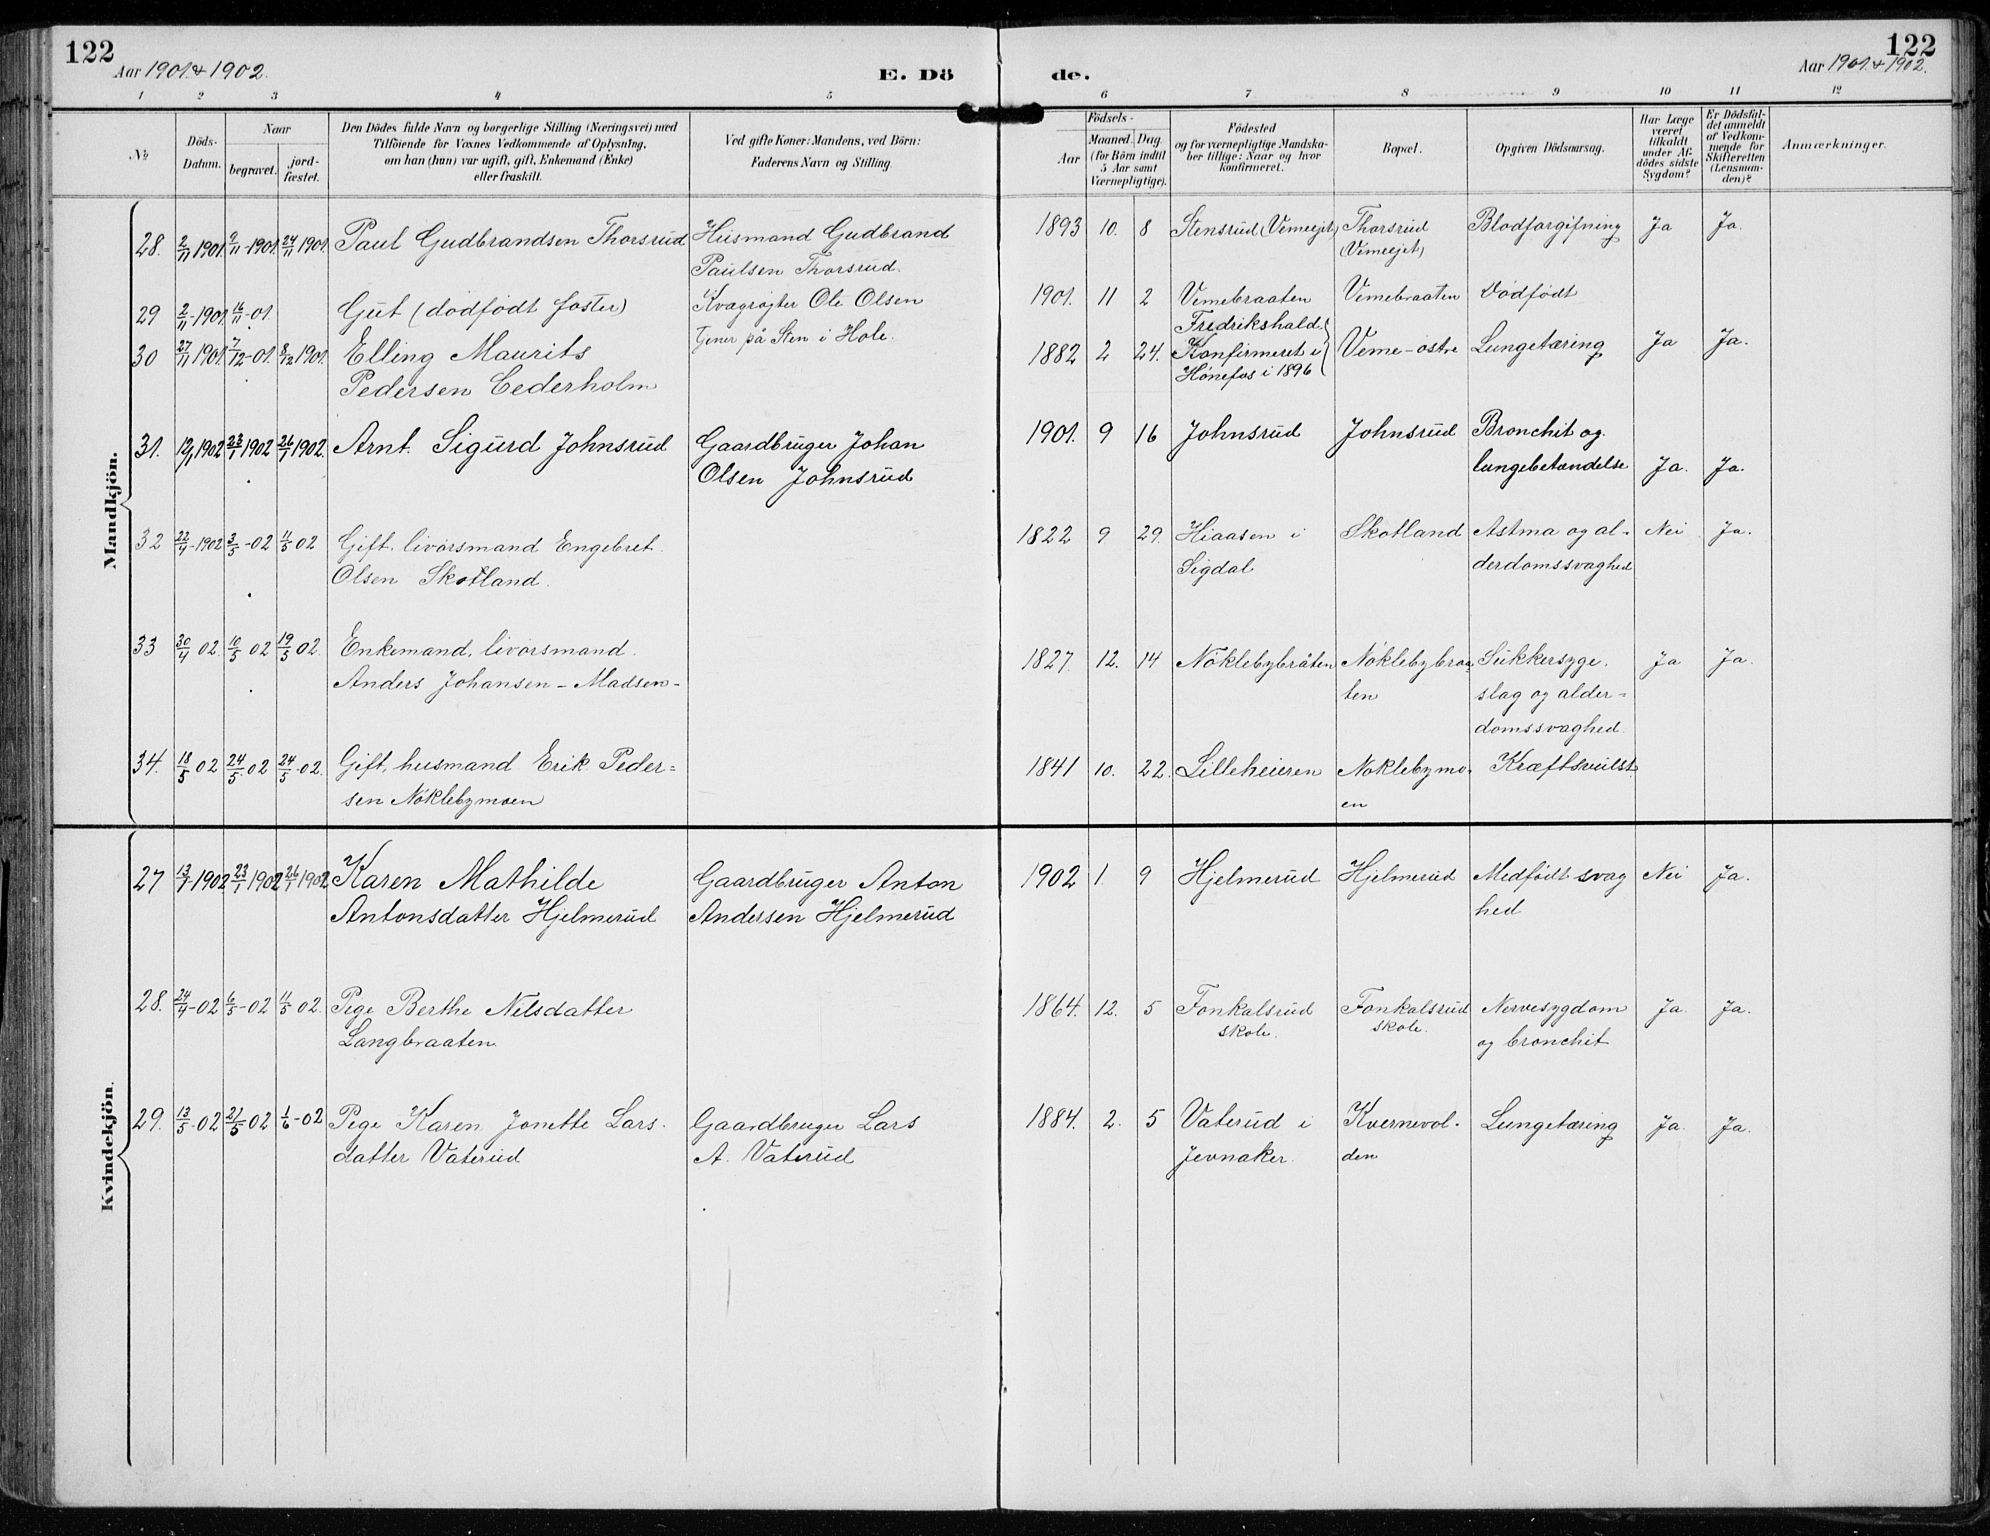 122
Aar 1901 & 1902.
E. Dö
de.
122
Aar 1901 & 1902.
1 2 3 4 5 6 7 8 9 10 11 12
No.
Döds-
Datum.
Naar
begravet.
jord-
fæstet.
Den Dödes fulde Navn og borgerlige Stilling (Næringsvei) med
Tilföiende for Voxnes Vedkommende af Oplysning,
om han (hun) var ugift, gift, Enkemand (Enke)
eller fraskilt.
Ved gifte Koner: Mandens, ved Börn:
Faderens Navn og Stilling.
Födsels-
Aar
Maaned. Dag
(for Börn indtil
5 Aar samt
Værnepligtige).
Födested
og for værnepligtige Mandska-
ber tillige: Naar og hvor
konfirmeret.
Bopæl.
Opgiven Dödsaarsag.
Har Læge
været
tilkaldt
under Af-
dödes sidste
Sygdom?
Er Dödsfal-
det anmeldt
af Vedkom-
mende for
Skifteretten
(Lensman-
den)?
Anmærkninger.
Mandkjön.
28. 2/11 1901 9/11-1901 24/11 1901 Paul Gudbrandsen Thorsrud Husmand Gudbrand 1893 10. 8 Stensrud (Vemeejet) Thorsrud Blodforgifning Ja Ja.
Paulsen Thorsrud. (Vemeejet)
29 2/11-1901 16/11-01. Gut (dødfødt foster) Kvægrøjter Ole Olsen 1901. 11 2 Vemebraaten Vemebraaten Dødfødt
Tjener på Sten i Hole. Fredrikshald.
30 27/11 1901. 7/12-01. 8/12 1901. Elling Maurits 1882 2 24. Konfirmeret i Veme-østre Lungetæring Ja Ja.
Pedersen Cederholm Hønefos i 1896
31. 12/1 1902 23/1 1902 26/1 1902. Arnt Sigurd Johnsrud Gaardbruger Johan 1901. 9 16 Johnsrud Johnsrud Bronchit og
Olsen Johnsrud lungebetændelse Ja. Ja.
32 22/4-1902 3/5-02 11/5 02 Gift, livørsmand Engebret 1822 9 29. Hiaasen i Skotland Astma og al- Nei Ja.
Olsen Skotland. Sigdal derdomssvaghed
33 30/4 02. 10/5 02 19/5 02. Enkemand, livørsmand. 1827. 12. 14 Nøklebybråten Nøklebybraa- Sukkersyge, Ja Ja.
Anders Johansen-Madsen- ten slag og alder-
domssvaghed.
34. 18/5 02 24/5 02 24/5-02. Gift, husmand Erik Peder- 1841 10. 22. Lilleheieren Nøklebymo- Kræftsvulst
sen Nøklebymoen en
Kvindekjön.
27 13/1-1902 23/1 1902 26/1 1902 Karen Mathilde Gaardbruger Anton 1902 1. 9 Hjelmerud Hjelmerud Medfødt svag Nei Ja.
Antonsdatter Hjelmerud Andersen Hjelmerud hed
28. 24/4-02 6/5-02 11/5 02. Pige Berthe Nilsdatter 1864. 12. 5 Fonkalsrud Fonkalsrud Nervesygdom Ja. Ja.
Langbraaten skole. skole. og bronchit
29. 13/5-02 21/5 02 1/6-02 Pige Karen Jonette Lars- Gaardbruger Lars 1884. 2. 5 Vaterud i Kvernevol- Lungetæring Ja. Ja.
datter Vaterud A. Vaterud Jevnaker. den